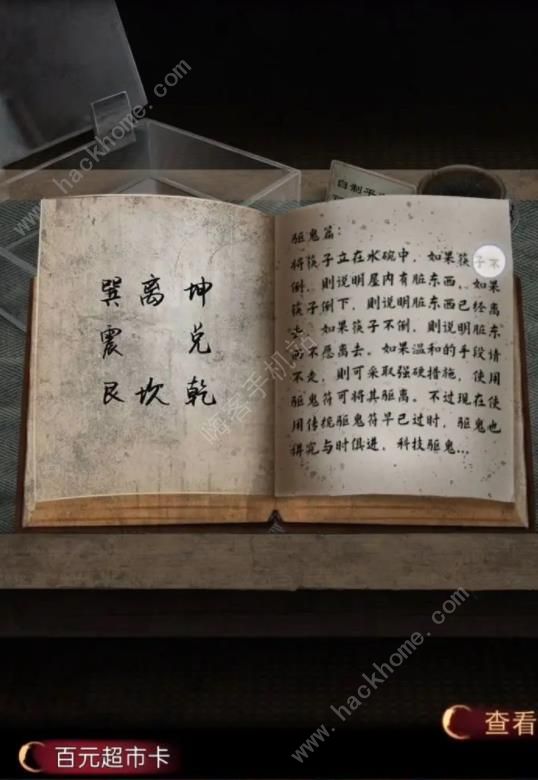 www.hackhome.com
自制平
巽 离 坤
震 兑
艮 坎 乾
驱鬼篇:
将筷子立在水碗中，如果筷子不
倒，则说明屋内有脏东西，如果
筷子倒下，则说明脏东西已经离
去。如果筷子不倒，则说明脏东
西不愿离去。如果温和的手段请
不走，则可采取强硬措施，使用
驱鬼符可将其驱离。不过现在使
用传统驱鬼符早已过时，驱鬼也
得与时俱进，科技驱鬼...
嗨客手机站
www.hackhome.com
查看
百元超市卡